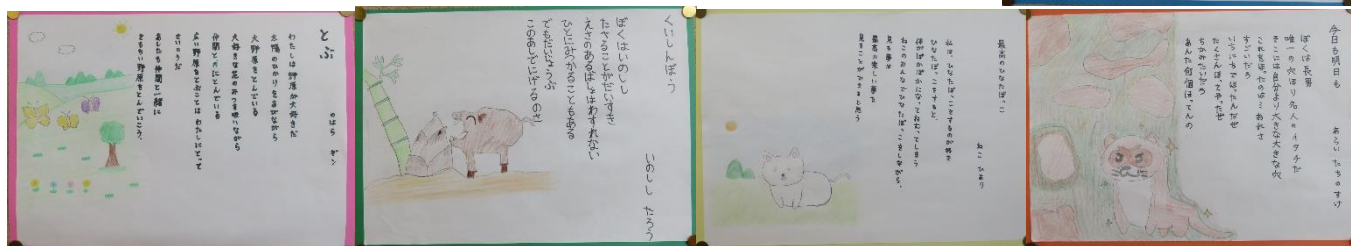 とぶ
のはら ギン
わたしは野原が大好きだ
太陽のひかりをあびながら
大野原をとんでいる
大好きな花のみつを吸いながら
仲間と共にとんでいる
広い野原をとぶことはわたしにとって
さいこうだ
あしたも仲間と一緒に
きもちいい野原をとんでいこう。
くいしんぼう
いのしし たろう
ぼくはいのしし
たべることがだいすき
えさのあるばしょはわすれない
ひとにみつかることもある
でもだいじょうぶ
このあしでにげるのさ
最高のひなたぼっこ
ねこ ひより
私は、ひなたぼっこをするのが好き
ひなたぼっこをすると、
体がぽかぽかになっておねむってしまう
ねこのみんなでひなたぼっこをしながら、
見る夢が
最高に楽しい夢を
見ることができると思う
今日も明日も
あらい たちのすけ
ぼくは長男
唯一の穴ほり名人のイタチだ
そこには自分より大きな大きな穴
これをほったのは…おれさ
すごいだろう
いちにちでほったんだぜ
たくさんほってやったぜ
ちかみたいだろう
あんた何個ほってんの